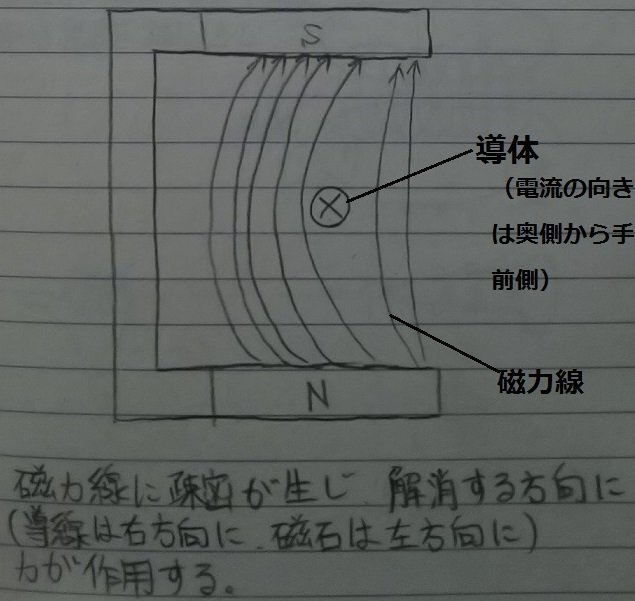 S
導体
（電流の向き
は奥側から手
前側）
磁力線
N
磁力線に疎密が生じ 解消する方向に
(導線は右方向に、磁石は左方向に)
力が作用する。